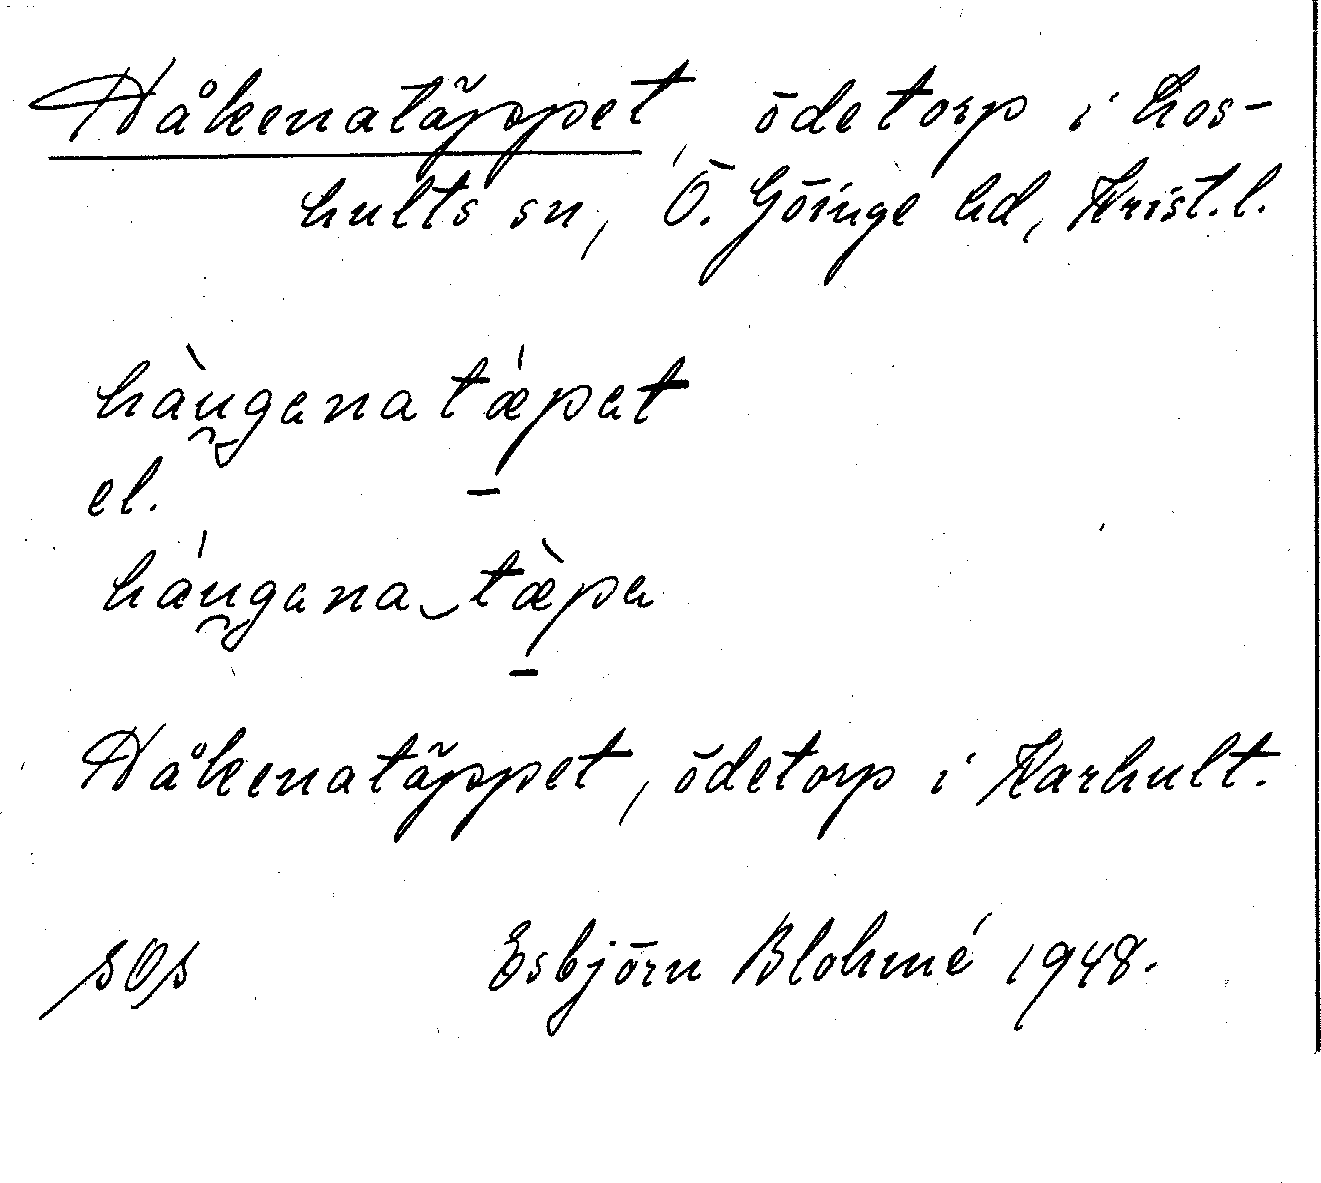 Håkenatäppet, ödetorp i Los-
hults sn, Ö. Göinge hd, Krist.l.
hàu̯gena tǽpet
el.
háu̯gena‿tæ̀pe
Håkenatäppet, ödetorp i Karhult.
sOs Esbjörn Blohmé 1948.